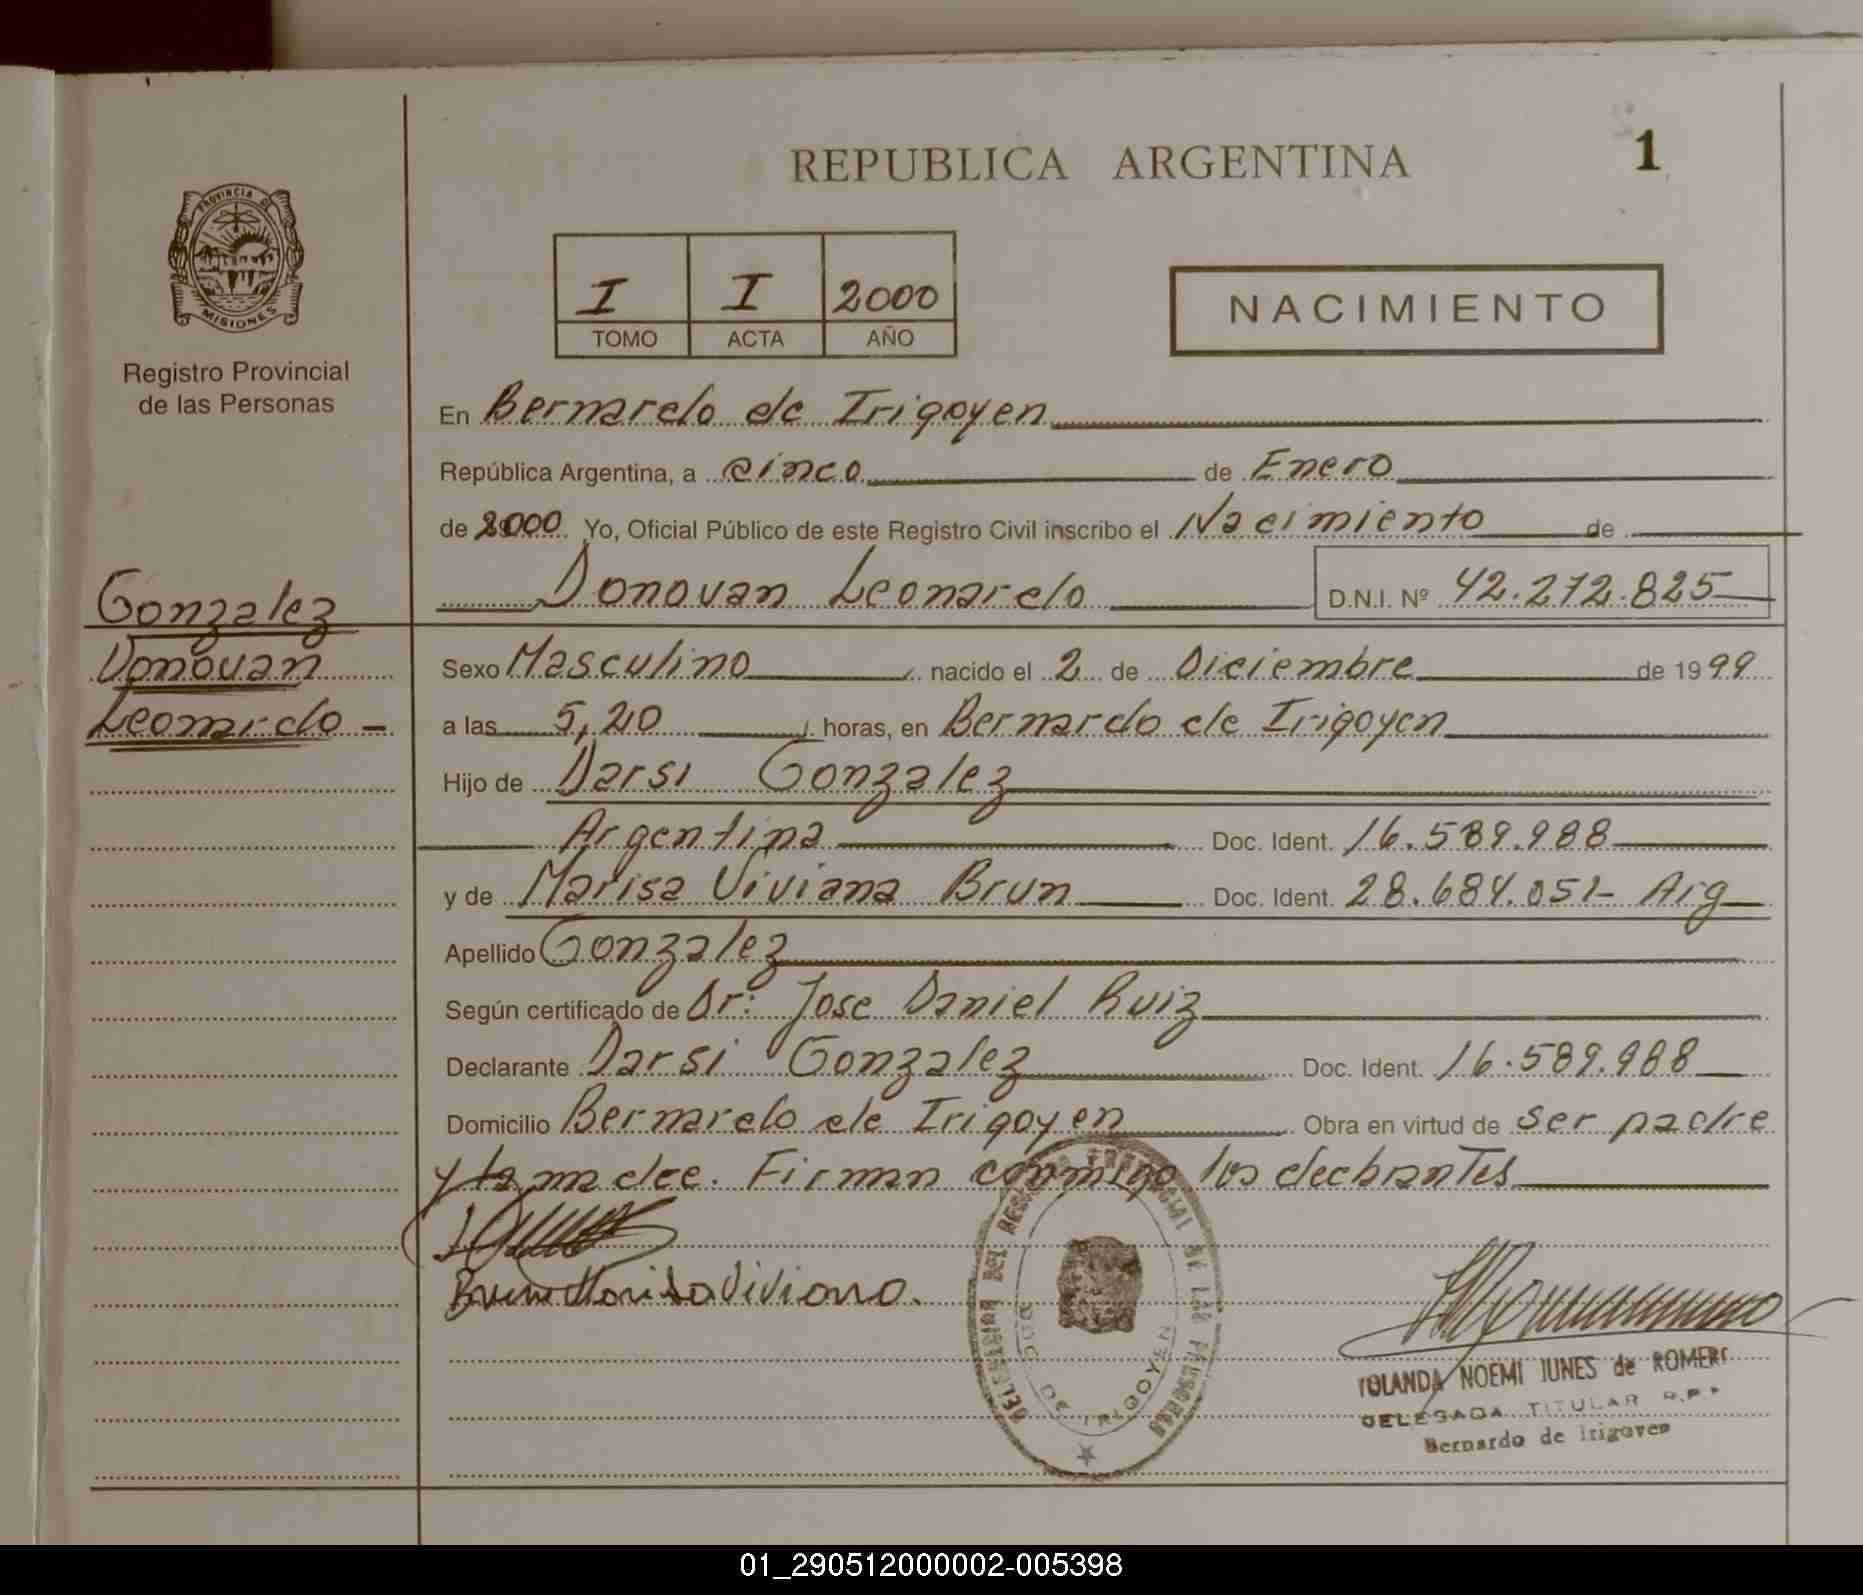 REPUBLICA ARGENTINA
1
PROVINCIA DE
MISIONES
Registro Provincial
de las Personas
I I 2000
TOMO ACTA AÑO
NACIMIENTO
En Bernardo de Irigoyen
República Argentina, a cinco de Enero
de 2000 Yo, Oficial Público de este Registro Civil inscribo el Nacimiento de
Donovan Leonardo D.N.I. Nº 42.272.825
Gonzalez
Donovan
Leonardo -
Sexo Masculino nacido el 2 de Diciembre de 1999
a las 5,20 horas, en Bernardo de Irigoyen
Hijo de Darsi Gonzalez
Argentina Doc. Ident. 16.589.988
y de Marisa Viviana Brun Doc. Ident. 28.684.051- Arg
Apellido Gonzalez
Según certificado de Dr: Jose Daniel Ruiz
Declarante Darsi Gonzalez Doc. Ident. 16.589.988
Domicilio Bernardo de Irigoyen Obra en virtud de ser padre
y la madre. Firman conmigo los declarantes
Viviana.
DELEGACION DEL REGISTRO PROVINCIAL DE LAS PERSONAS
BDO. DE IRIGOYEN
YOLANDA NOEMI JUNES de ROMERO
DELEGADA TITULAR R.P.P
Bernardo de Irigoyen
01_290512000002-005398